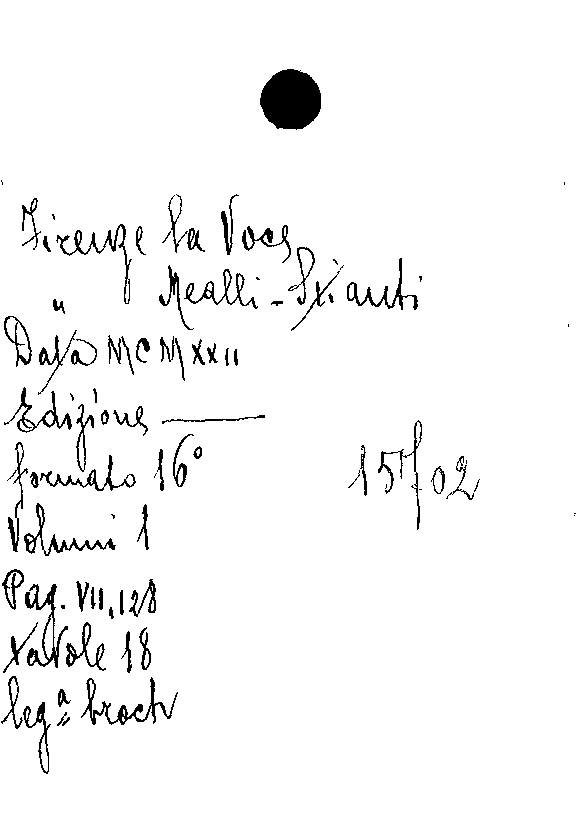 Firenze la Voce
" Mealli-Stianti
Data MCMXXII
Edizione ———
formato 16°
Volumi 1
Pag. VII, 128
tavole 18
leg.ª broch